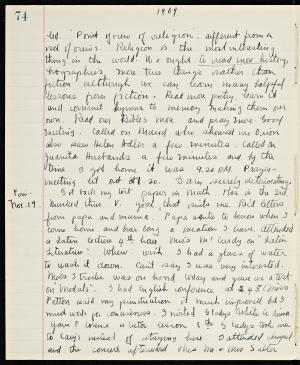 74
1909
led. "Point of view of religion, different from a
of ours. Religion is the most interesting
thing in the world. We ought to read more history,
biographies, more true things rather than
fiction although we can learn many helpful
lessons from fiction. Read more poetry. Learn it
and commit hymns to memory making them our
own. Read our Bibles more and pray more. Good
meeting. Called on Maud who showed me
also saw Helen Adler a few minutes. Called on
Juanita Husbands a few minutes and by the
time I got home it was 9.20 P.M. Prayer-
meeting let out
Fri.
Nov. 19.
Ed back my test paper in Math. this is the 3rd.
marked thus V. good, that suits me. Had letters
from papa and mama. Papa wants to know when I
come home and how long a vacation I have. Attended
a Latin lecture 4th hour. Miss Mc Curdy on "Latin
Literature". Where with I had a glass of water
to wash it down. Can't say I was very interested.
Miss was on hand today and gave us a test
on "Modals". I had English conference at 2.45 (Miss
said my punctuation is much improved but I
must work for conciseness. I visited Gladys White in
Gave a lesson 8th Gladys took me
to instead of staying here. I attended chapel
and the concert afterward